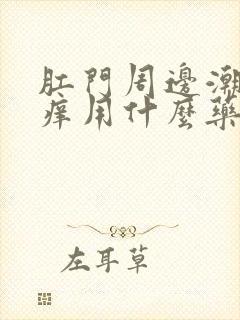 肛門周邊潮
癢用什麼藥
左耳草